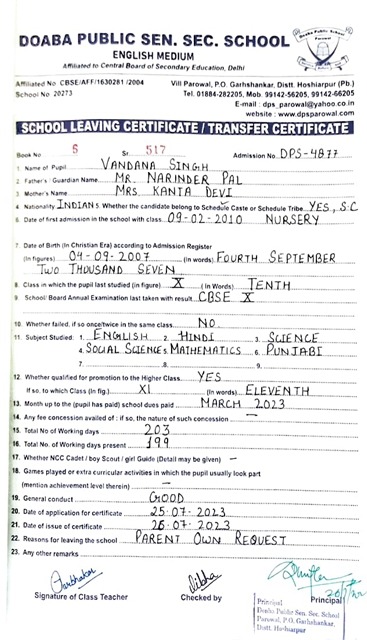 DOABA PUBLIC SEN. SEC. SCHOOL
ENGLISH MEDIUM
Affiliated to Central Board of Secondary Education, Delhi
Affiliated No CBSE/AFF/1630281 /2004
School No. 20273
Vill Parowal, P.O. Garhshankar, Distt. Hoshiarpur (Pb.)
Tel. 01884-282205, Mob. 99142-56205, 99142-66205
E-mail : dps_parowal@yahoo.co.in
website : www.dpsparowal.com
SCHOOL LEAVING CERTIFICATE / TRANSFER CERTIFICATE
Book No 5 Sr 517 Admission No. DPS-4877
1 Name of Pupil VANDANA SINGH
2 Father's / Guardian Name MR. NARINDER PAL
3 Mother's Name MRS. KANTA DEVI
4 Nationality INDIANS Whether the candidate belong to Schedule Caste or Schedule Tribe YES, S.C
6 Date of first admission in the school with class 09-02-2010 NURSERY
7 Date of Birth (In Christian Era) according to Admission Register
(In figures) 04-09-2007 (In words) FOURTH SEPTEMBER
TWO THOUSAND SEVEN
8. Class in which the pupil last studied (in figure) X (In Words) TENTH
9. School/ Board Annual Examination last taken with result CBSE X
10. Whether failed, if so once/twice in the same class NO
11. Subject Studied: 1. ENGLISH 2. HINDI 3. SCIENCE
4. SOCIAL SCIENCE 5. MATHEMATICS 6. PUNJABI
7. 8. 9.
12. Whether qualified for promotion to the Higher Class. YES
If so, to which Class (In fig.) XI (In words) ELEVENTH
13. Month up to the (pupil has paid) school dues paid MARCH 2023
14. Any fee concession availed of : if so, the nature of such concession —
15. Total No of Working days 203
16. Total No. of Working days present 199
17. Whether NCC Cadet / boy Scout / girl Guide (Detail may be given) —
18. Games played or extra curricular activities in which the pupil usually look part
(mention achievement level therein) —
19. General conduct GOOD
20. Date of application for certificate 25-07-2023
21. Date of issue of certificate 26-07-2023
22. Reasons for leaving the school PARENT OWN REQUEST
23. Any other remarks
Signature of Class Teacher
Checked by
Principal
Principal
Doaba Public Sen. Sec. School
Parowal, P.O. Garhshankar,
Distt. Hoshiarpur